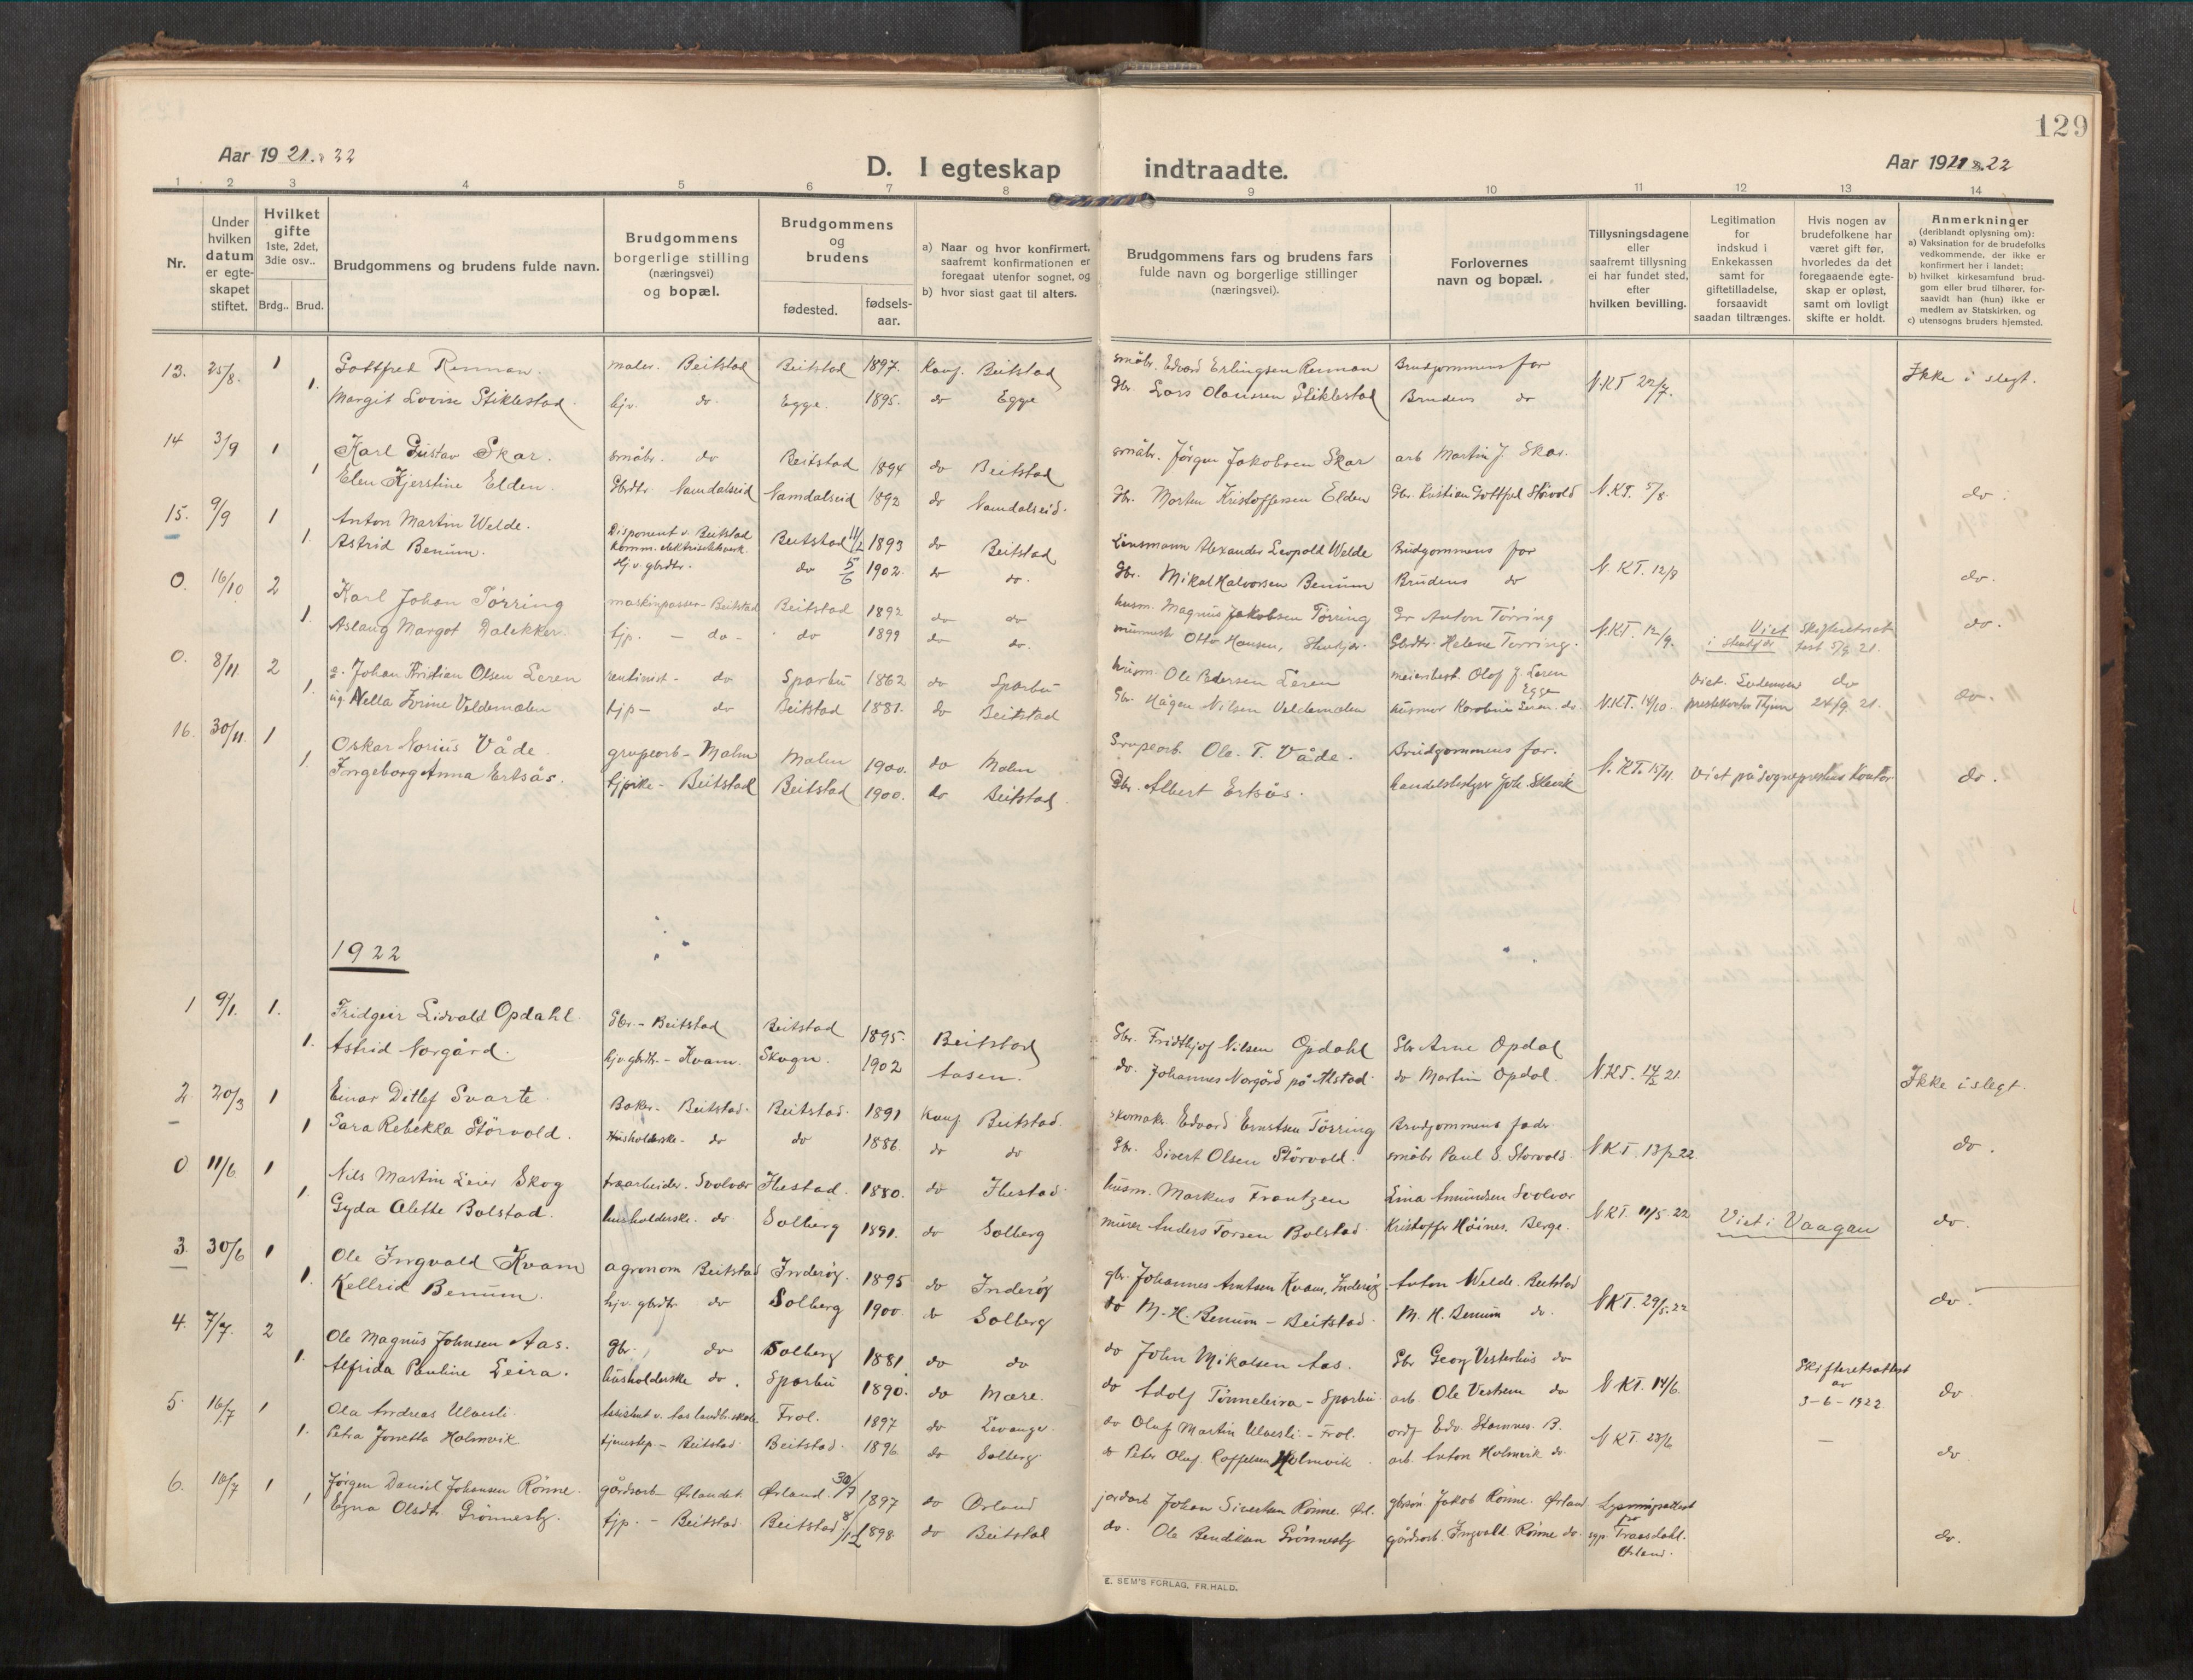 129
Aar 1921. & 22
D. I egteskap indtraadte.
Aar 1921 & 22
1 2 3 4 5 6 7 8 9 10 11 12 13 14
Nr.
Under hvilken datum er egte-skapet stiftet.
Hvilket gifte 1ste, 2det, 3die osv..
Brdg.. Brud.
Brudgommens og brudens fulde navn.
Brudgommens borgerlige stilling (næringsvei) og bopæl.
Brudgommens og brudens
fødested.
fødsels-aar.
a) Naar og hvor konfirmert, saafremt konfirmationen er foregaat utenfor sognet, og
b) hvor sidst gaat til alters.
Brudgommens fars og brudens fars fulde navn og borgerlige stillinger (næringsvei).
Forlovernes navn og bopæl.
Tillysningsdagene eller saafremt tillysning ei har fundet sted, efter hvilken bevilling.
Legitimation for indskud i Enkekassen samt for giftetilladelse, forsaavidt saadan tiltrænges.
Hvis nogen av brudefolkene har været gift før, hvorledes da det foregaaende egte-skap er opløst, samt om lovligt skifte er holdt.
Anmerkninger (deriblandt oplysning om):
a) Vaksination for de brudefolks vedkommende, der ikke er konfirmert her i landet;
b) hvilket kirkesamfund brud-gom eller brud tilhører, for-saavidt han (hun) ikke er medlem av Statskirken, og
c) utensogns bruders hjemsted.
13. 25/8. 1 Gottfred Renman. maler. Beitstad Beitstad 1897. Konf. Beitstad småbr. Edvard Erlingsen Renman Brudgommens far
1. Margit Lovise Stiklestad. hjv. do. Egge. 1895. do Egge Gbr. Lars Olaussen Stiklestad Brudens do N.KT 22/7. Ikke i slegt.
14 3/9 1 Karl Gustav Skar. småbr. do Beitstad 1894 do Beitstad småbr. Jörgen Jakobsen Skar arb Martin J. Skar.
1 Elen Kjerstine Elden. Gbrdtr. Namdalseid Namdalseid 1892 do Namdalseid. Gbr. Morten Kristoffersen Elden Gbr. Kristian Gottfred Störvold N.KT. 5/8. do.
15. 9/9 1 Anton Martin Welde. Disponent v. Beitstad komm. elektrisitetsverk Beitstad 11/2 1893 do Beitstad Lensmann Alexander Leopold Welde Brudgommens far
1. Astrid Benum. Hj. v. gbrdtr. do 5/6 1902. do do. Gbr. Mikal Halvorsen Benum Brudens do N.KT. 12/8 do.
0. 16/10 2 Karl Johan Törring maskinpasser - Beitstad Beitstad 1892 do do husm. Magnus Jakobsen Törring Gr Anton Törring
1. Aslaug Margot Dalekker. tjp. - do - do 1899 do do. Otto Hansen, Stenkjær. Gbrdtr. Helene Torring. N.KT. 12/9. Viet i Stenkjær do.
0. 8/11. 2 g. Johan Kristian Olsen Leren do Sparbu 1862 do Sparbu husm. Ole Pedersen Leren Olaf J. Leren Egge
1. ug. Nella Jörine Veldemælen tjp - do Beitstad 1881. do Beitstad Gbr. Hågen Nilsen Veldemælen N.KT. 14/10. do 24/9 21. do.
16. 30/11. 1 Oskar Norius Våde. grupearb - Malm Malm 1900. do Malm Grupearb. Ole. T. Våde. Brudgommens far.
1 Ingeborg Anna Ertsås. tjpike - Beitstad Beitstad 1900. do Beitstad. Gbr. Albert Ertsås. N.KT. 15/11. Viet på sogneprestens kontor do.
1922
1 9/1. 1. Fridgeir Lidvald Opdahl. Gbr. - Beitstad Beitstad 1895. Beitstad Gbr. Fridthjof Nilsen Opdahl Gbr Arne Opdal
1. Astrid Norgård. hjv. gbrdtr. - Kvam. Skogn. 1902 Aasen. do. Johannes Norgård på Alstad. do Martin Opdal. N.KT. 14/12 21. Ikke i slegt.
2 20/3 1 Einar Ditlef Svarte. Baker - Beitstad. Beitstad. 1891 Konf. Beitstad. skomak. Edvard Ernstsen Törring Brudgommens fader
1 Sara Rebekka Störvold. Husholderske - do do 1886. do do Gbr. Sivert Olsen Störvold. småbr Paul S. Storvold. N KT. 13/2 22. do.
0 11/6 1 Nils Martin Leier Skog træarbeider. Svolvær Ibestad. 1880. do Ibestad. husm. Markus Frantzen Lina Amundsen Svolvær
1. Gyda Alette Bolstad. husholderske. do Solberg 1891. do Solberg murer Anders Torsen Bolstad. Kristoffer Höines. Berge. N KT. 11/5 22 Viet i Vaagan do.
3. 30/6 1 Ole Ingvald Kvam agronom Beitstad Inderöy. 1895 do Inderöy gbr. Johannes Arntsen Kvam, Inderöy Anton Welde. Beitstad
1. Kellrid Benum. hjv. gbrdtr do Solberg 1900. do Solberg do M. H. Benum - Beitstad. M. H. Benum do. N KT. 29/5. 22 do.
4. 7/7. 2 Ole Magnus Johnsen Aas. gbr. do Solberg 1881 do do do John Mikalsen Aas. Gbr Georg Vesterhus do Skifteretsattest av
1. Alfrida Pauline Leira. husholderske do. Sparbu 1890. do Mære. do Adolf Tönneleira - Sparbu. arb. Ole Vestrem do N KT. 14/6. 3-6-1922 do
5. 16/7 1 Ola Andreas Ulvesli. Assistent v. Aas landbr.skole. Frol. 1897 do Levanger. do Oluf Martin Ulvesli - Frol. ordf Edv. Stamnes. B.
1. Petra Jonetta Holmvik tjenestp. - Beitstad. Beitstad. 1896 do Solberg. do Peter Oluf Holmvik. arb. Anton Holmvik do. N KT 23/6 — do.
6. 16/7 1 Jörgen Daniel Johansen Rönne. gårdsarb - Ørlandet Ørland. 30/7 1897 do Ørland jordarb Johan Sivertsen Rönne. Ørl. gbrsön. Jakob Rönne. Ørland Lysningsattest
1 Egna Olsdtr. Grönnesby. tjp. - Beitstad. Beitstad. 8/12 1898. do Beitstad do. Ole Bendiksen Grönnesby gårdsarb. Ingvald Rönne do. Ørland. do.
E. SEM'S FORLAG, FR.HALD.